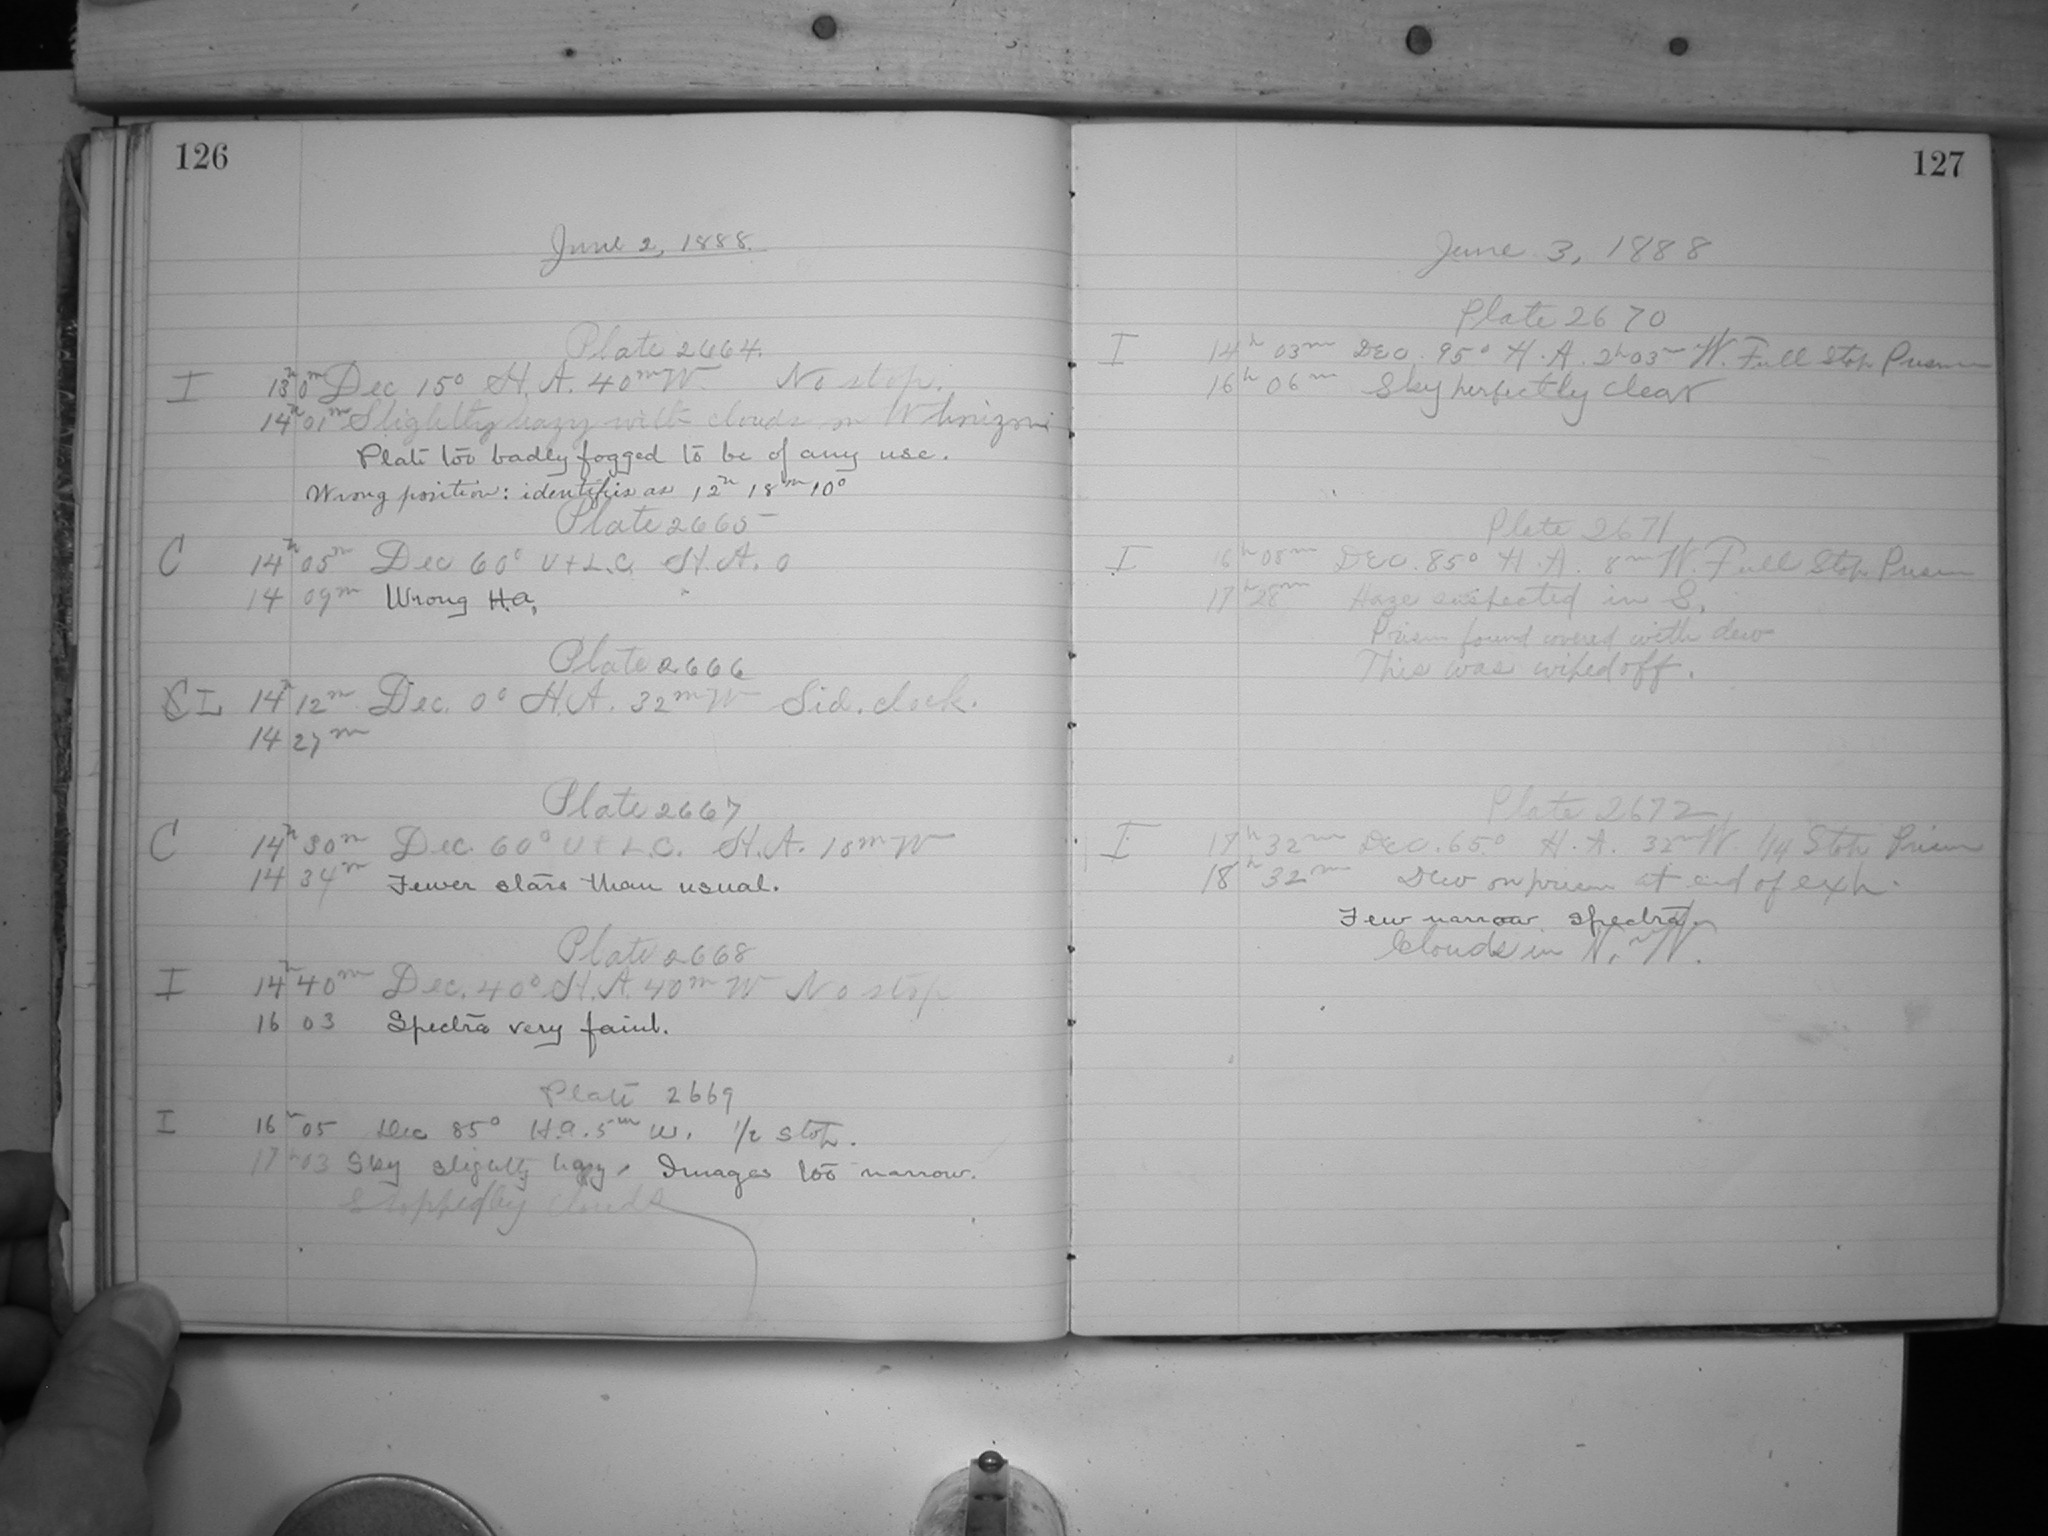 126
June 2, 1888.
Plate 2664.
I 13h 0m Dec 15° H.A. 40m W. No stop.
14h 01m Slightly hazy with clouds on W horizon
Plate too badly fogged to be of any use.
Wrong position: identifies as 12h 18m 10°
Plate 2665
C 14h 05m Dec 60° U+L.C. H.A. 0
14 09m Wrong H.a.
Plate 2666
I 14h 12m Dec. 0° H.A. 32m W Sid. clock.
14 27m
Plate 2667
C 14h 30m Dec. 60° U+L.C. H.A. 18m W
14 34m Fewer stars than usual.
Plate 2668
I 14h 40m Dec. 40° H.A. 40m W No stop
16 03 Spectra very faint.
Plate 2669
I 16h 05 Dec 85° H.a. 5m W. 1/2 stop.
17h 03 Sky slightly hazy. Images too narrow.
Stopped by clouds
127
June 3, 1888
Plate 2670
I 14h 03m Dec. 95° H.A. 2h 03m W. Full Stop Prism
16h 06m Sky perfectly clear
Plate 2671
I 16h 08m Dec. 85° H.A. 8m W. Full Stop Prism
17h 28m Haze suspected in S.
Prism found covered with dew
This was wiped off.
Plate 2672
I 17h 32m Dec. 65° H.A. 32m W. 1/4 Stop Prism
18h 32m Dew on prism at end of exp.
Few narrow spectra.
Clouds in N. W.